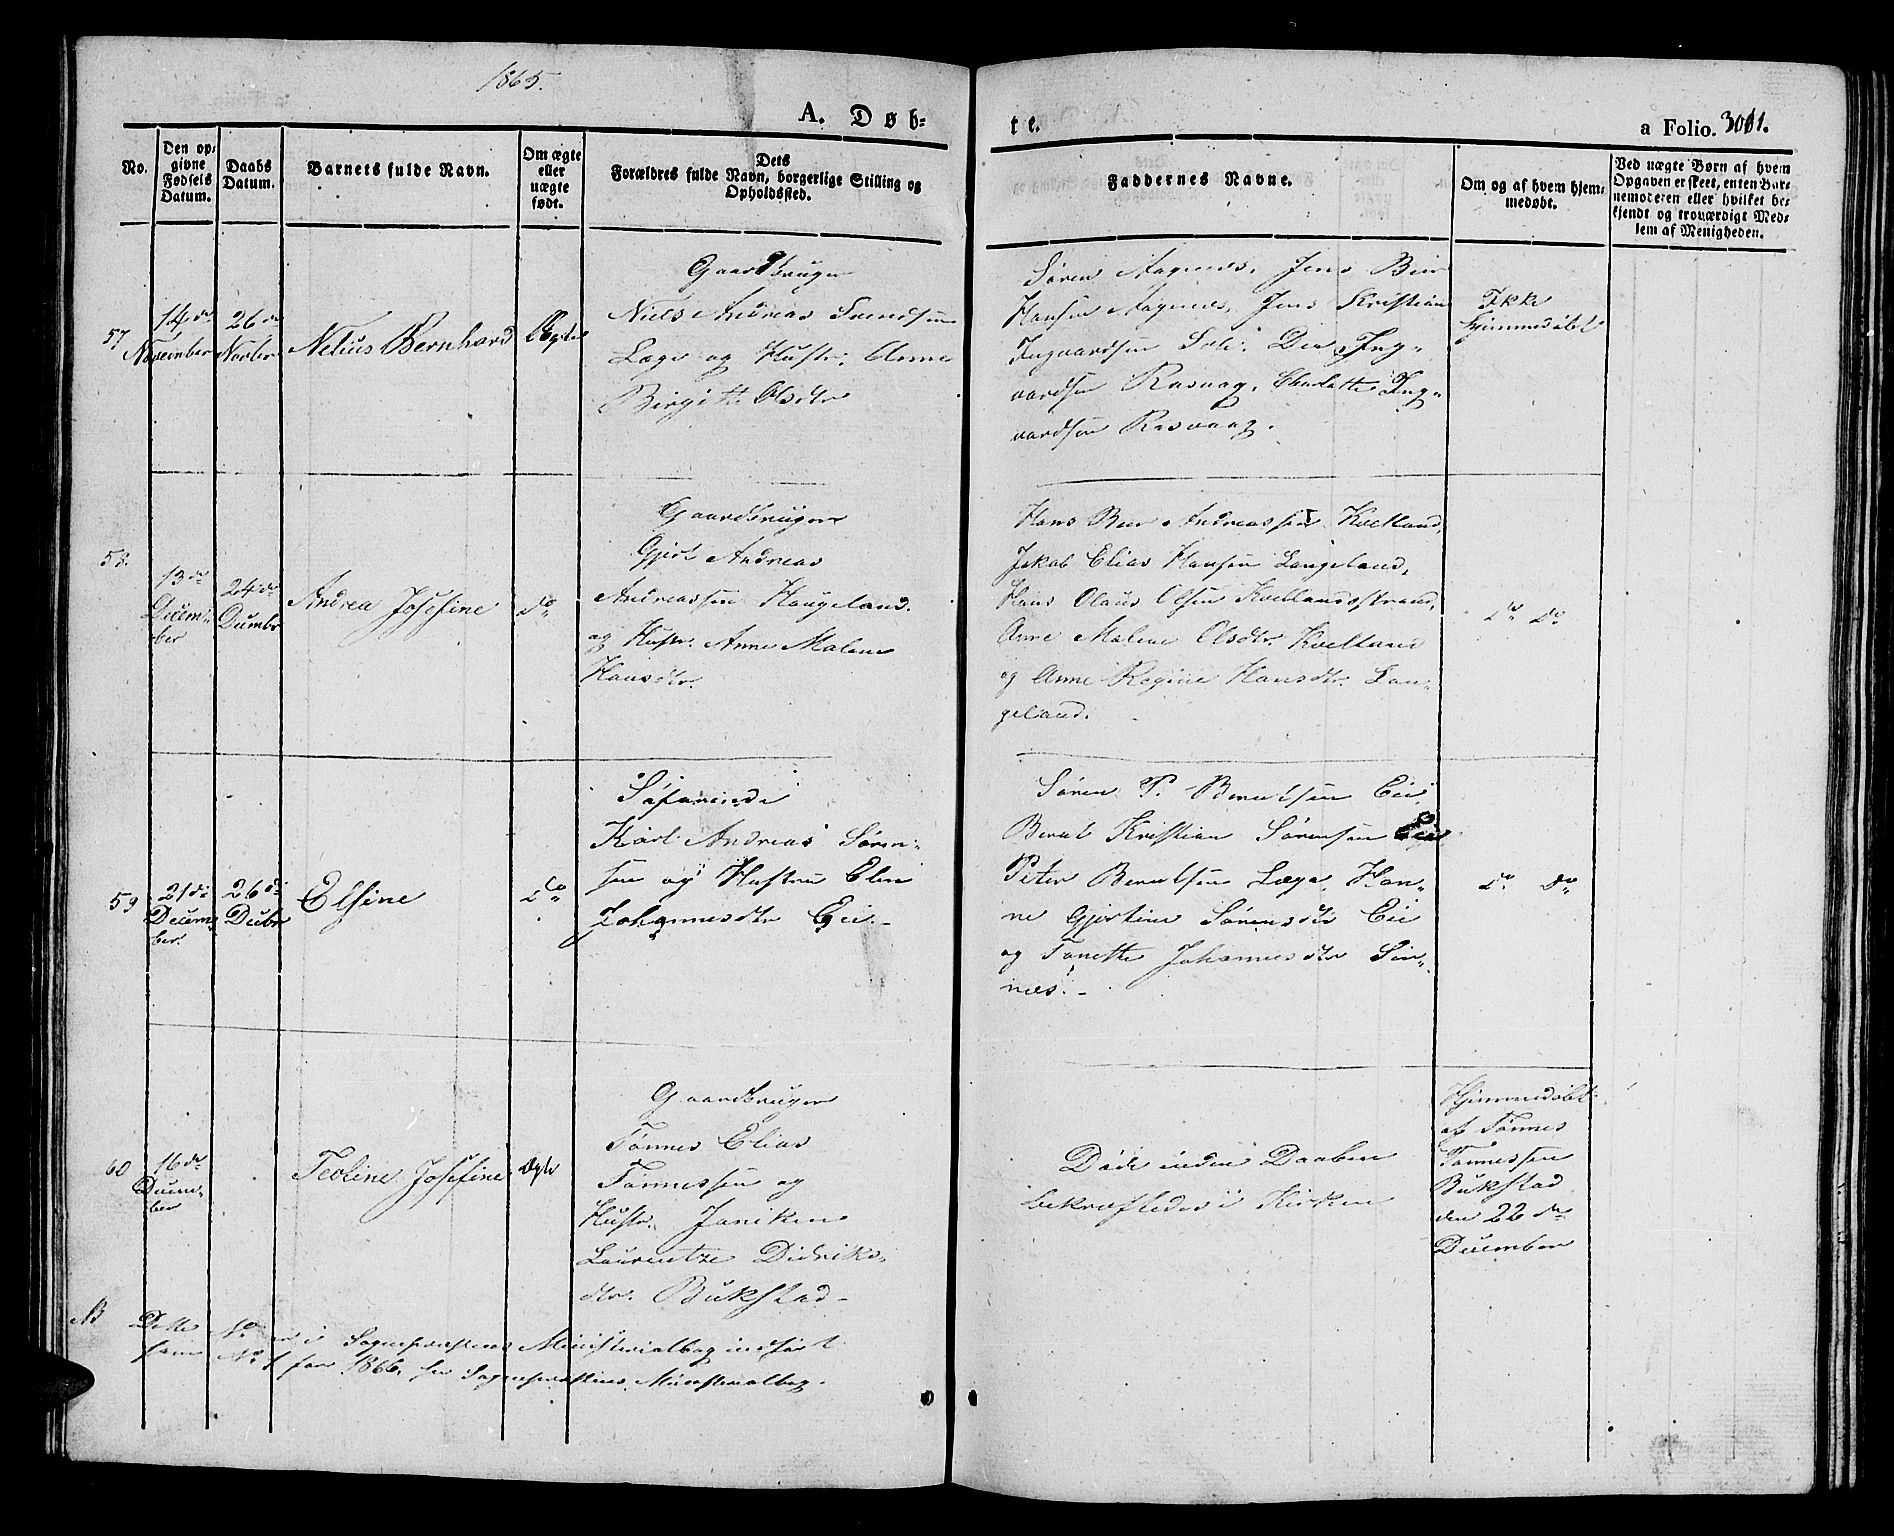 1865.
A. Døb-
te.
a Folio. 301.
No.
Den op-
givne
Fødsels
Datum.
Daabs
Datum.
Barnets fulde Navn.
Om ægte
eller
uægte
født.
Dets
Forældres fulde Navn, borgerlige Stilling og
Opholdssted.
Faddernes Navne.
Om og af hvem hjem-
medøbt.
Ved uægte Børn af hvem
Opgaven er skeet, enten Bar-
nemoderen eller hvilket be-
kjendt og troværdigt Med-
lem af Menigheden.
57
14de
November
26de
Novbr
Nelius Bernhard
Ægte
Gaardbruger
Niels Andreas Svendsen
Lage og Hustr. Anne
Birgitte Olsdtr
Søren Aagenes, Jens Beer
Hansen Aagenes, Jens Kristian
Ingvardsen Soli, Ing-
vardsen Rasvaag, Charlotte Ing-
vardsen Rasvaag.
Ikke
Hjemmedøbt
58.
13de
Decem-
ber
24de
Decmbr
Andrea Josefine
do
Gaardbruger
Gjert Andreas
Andreassen Haugeland
og Hustr. Anne Malene
Hansdtr.
Hans Beer Andreassen Kvelland,
Jakob Elias Hansen Langeland,
Hans Olaus Olsen Kvellandsstrand,
Anne Malene Olsdtr. Kvelland
og Anne Regine Hansdtr. Lan-
geland.
do do
59
21de
Decem-
ber.
26de
Decbr
Elsine
do
Søfarende
Karl Andreas Søren-
sen og Hustru Elen
Johannesdtr Eie.-
Søren P. Berntsen Eie
Bernt Kristian Sørensen Eie
Peter Berntsen Lage, Han-
ne Gjertine Sørensdtr Eie
og Tonette Johannesdtr Sin-
næs.-
do do
60
16de
Decem-
ber
Teoline Josefine
Ægte
Gaardbruger
Tønnes Elias
Tønnessen og
Hustr. Janiken
Laurentze Didriks-
dtr. Bukstad-
Døde inden Daaben
bekræftedes i Kirken
Hjemmedøbt
af Tønnes
Tønnessen
Bukstad
den 22de
December
NB
Dette No er i Sognepræstens Ministerialbog indført
som No 1 for 1866, se Sognepræstens Ministerialbog.